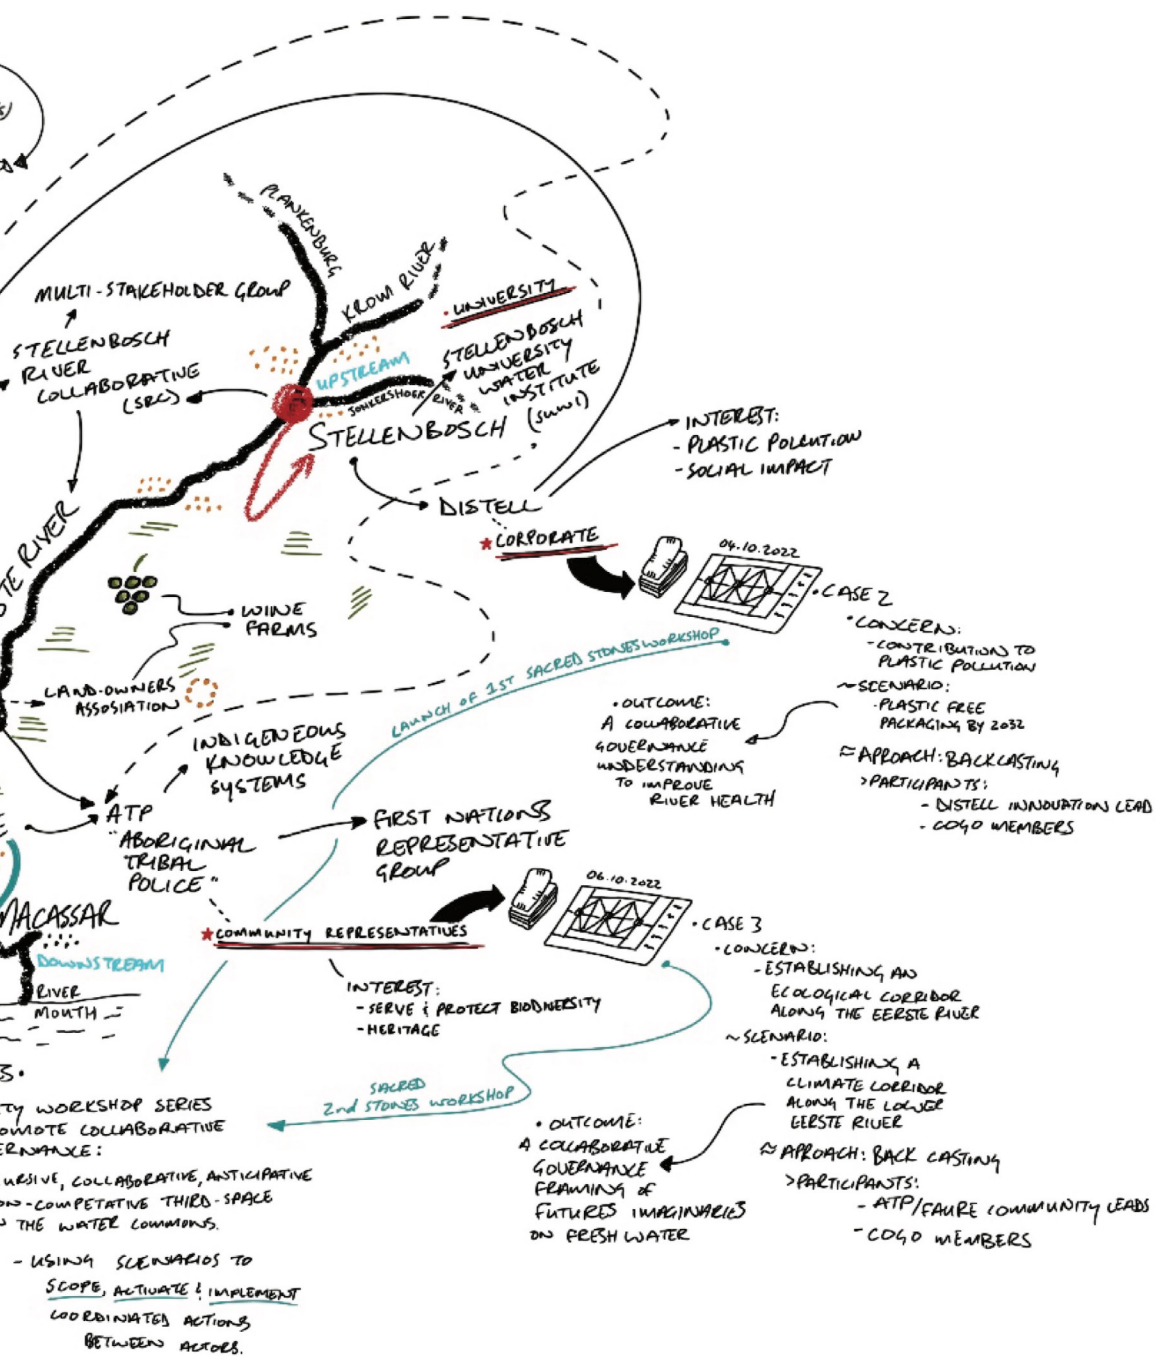 PLANKENBURG
KROM RIVER
MULTI-STAKEHOLDER GROUP
STELLENBOSCH
RIVER
COLLABORATIVE
(SRC)
UNIVERSITY
STELLENBOSCH
UNIVERSITY
WATER
INSTITUTE
(SUWI)
UPSTREAM
JONKERSHOEK RIVER
STELLENBOSCH
INTEREST:
- PLASTIC POLLUTION
- SOCIAL IMPACT
DISTELL
CORPORATE
04.10.2022
CASE 2
CONCERN:
- CONTRIBUTION TO
PLASTIC POLLUTION
~ SCENARIO:
- PLASTIC FREE
PACKAGING BY 2032
≈ APROACH: BACKCASTING
> PARTICIPANTS:
- DISTELL INNOVATION LEAD
- COGO MEMBERS
• OUTCOME:
A COLLABORATIVE
GOVERNANCE
UNDERSTANDING
TO IMPROVE
RIVER HEALTH
RIVER
WINE
FARMS
LAND-OWNERS
ASSOSIATION
LAUNCH OF 1ST SACRED STONES WORKSHOP
INDIGENEOUS
KNOWLEDGE
SYSTEMS
ATP
"ABORIGINIAL
TRIBAL
POLICE"
FIRST NATIONS
REPRESENTATIVE
GROUP
MACASSAR
DOWNSTREAM
RIVER
MOUTH
COMMUNITY REPRESENTATIVES
INTEREST:
- SERVE & PROTECT BIODIVERSITY
- HERITAGE
06.10.2022
• CASE 3
• CONCERN:
- ESTABLISHING AN
ECOLOGICAL CORRIDOR
ALONG THE EERSTE RIVER
~ SCENARIO:
- ESTABLISHING A
CLIMATE CORRIDOR
ALONG THE LOWER
EERSTE RIVER
≈ APROACH: BACK CASTING
> PARTICIPANTS:
- ATP/FAURE COMMUNITY LEADS
- COGO MEMBERS
SACRED
2nd STONES WORKSHOP
• OUTCOME:
A COLLABORATIVE
GOVERNANCE
FRAMING OF
FUTURES IMAGINARIES
ON FRESH WATER
WORKSHOP SERIES
COLLABORATIVE
URSIVE, COLLABORATIVE, ANTICIPATIVE
ON-COMPETATIVE THIRD-SPACE
THE WATER COMMONS.
- USING SCENARIOS TO
SCOPE, ACTIVATE & IMPLEMENT
COORDINATED ACTIONS
BETWEEN ACTORS.